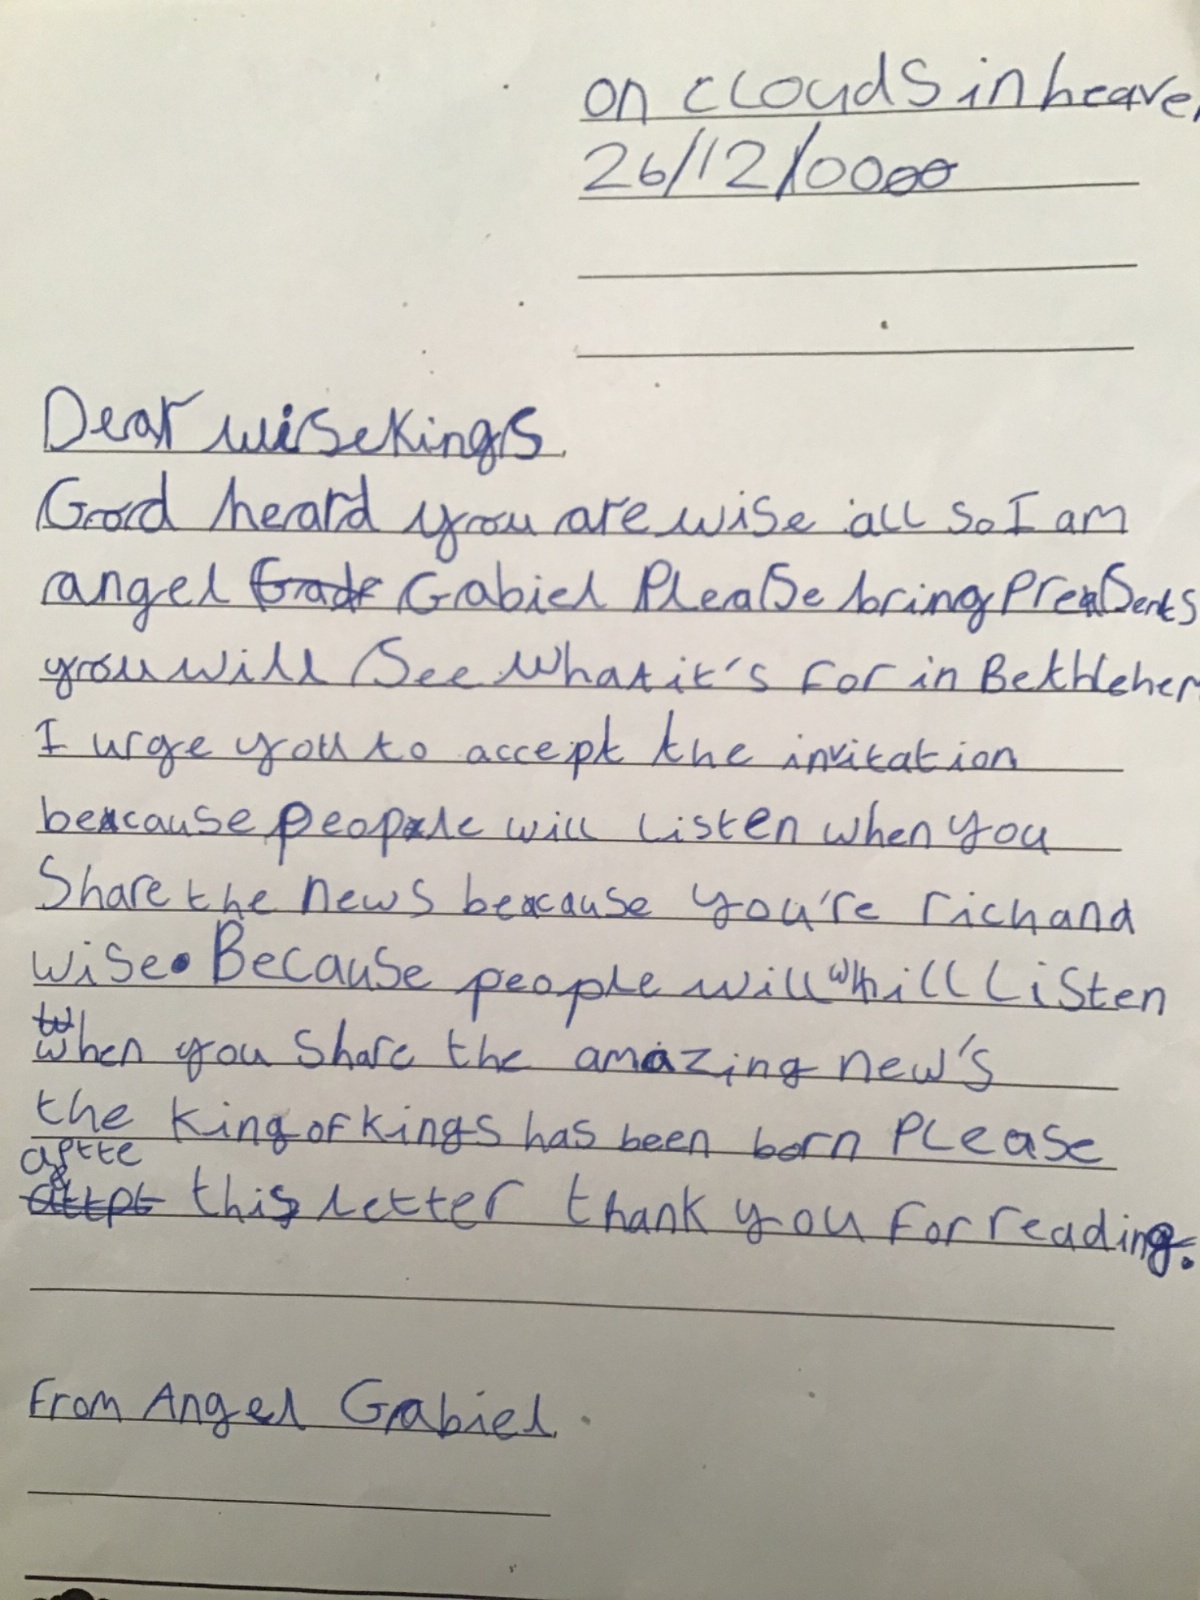 on clouds in heaven
26/12/0000
Dear wise kings
God heard you are wise all so I am
angel Gabiel Please bring Presents
you will See What it's for in Bethlehem
I urge you to accept the invitation
because people will listen when you
Share the news because you're rich and
wise. Because people will will Listen
when you share the amazing new's
the king of kings has been born PLease
this letter thank you for reading.
From Angel Gabiel